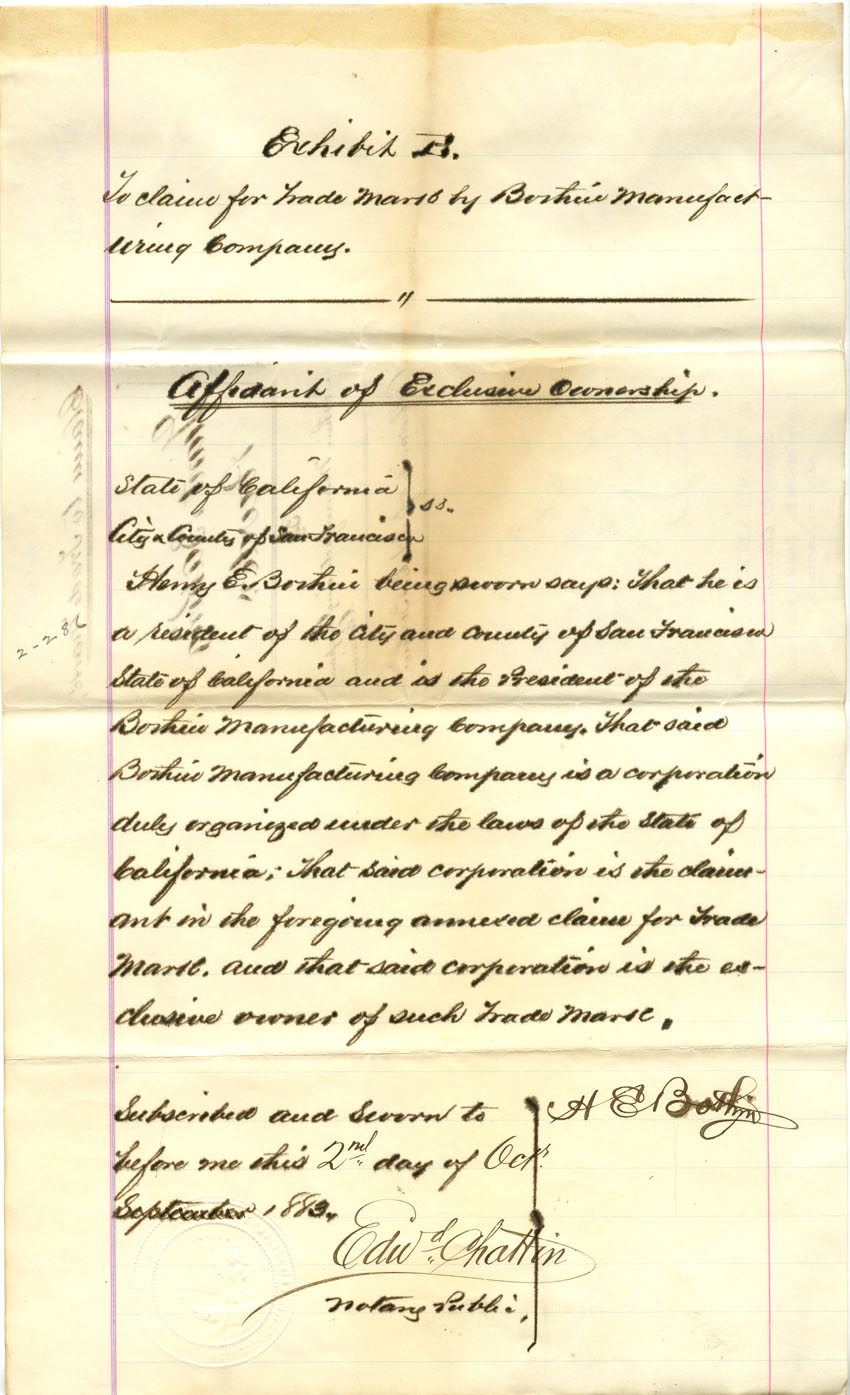 Exhibit B.
To claim for Trade Mark by Bothin Manufact-
uring Company.
"
Affidavit of Exclusive Ownership.
State of California
ss.
City & County of San Francisco
Henry E. Bothin being sworn says: That he is
a resident of the City and County of San Francisco
State of California and is the President of the
Bothin Manufacturing Company. That said
Bothin Manufacturing Company is a corporation
duly organized under the laws of the State of
California; That said corporation is the claim-
ant in the foregoing annexed claim for Trade
Mark. and that said corporation is the ex-
clusive owner of such Trade Mark.
2-286
Subscribed and Sworn to
H E Bothin
before me this 2nd day of Oct.
September 1883.
Edwd. Chattin
Notary Public.